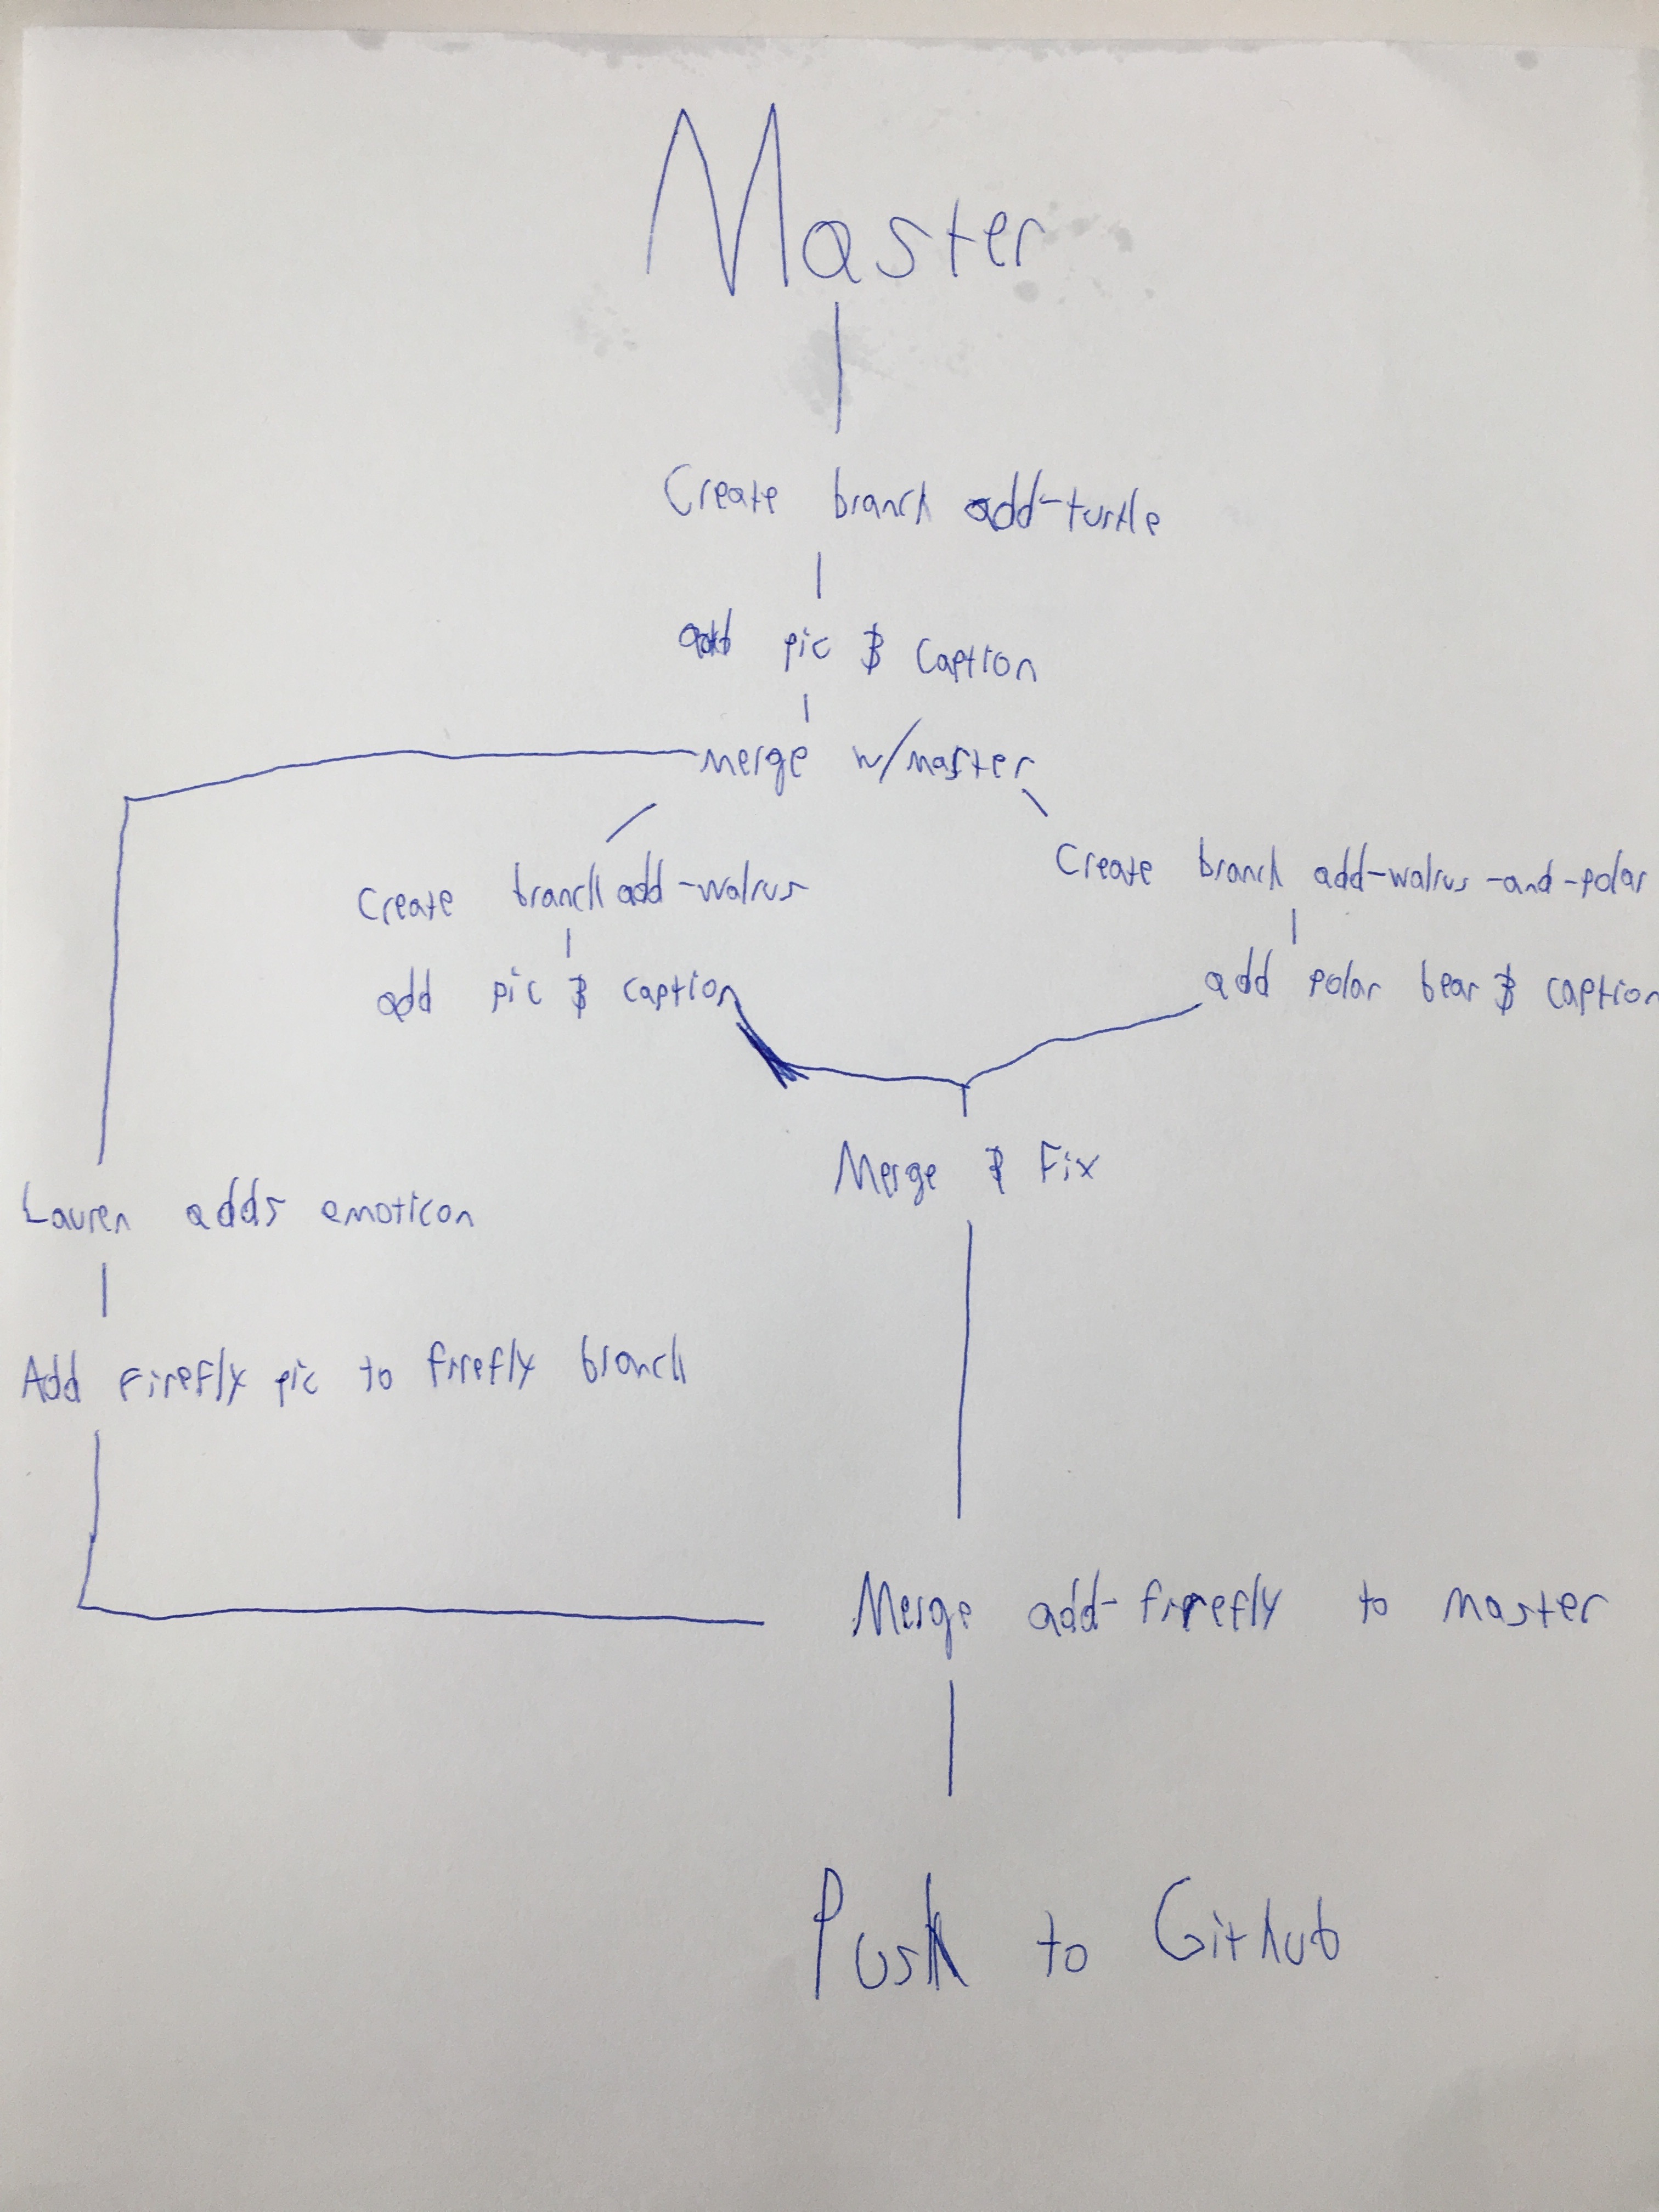 Master
Create branch add-turtle
add pic & caption
merge w/master
Create branch add-walrus
Create branch add-walrus-and-polar
add pic & caption
add polar bear & caption
Merge & Fix
Lauren adds emoticon
Add firefly pic to firefly branch
Merge add-firefly to master
Push to Github